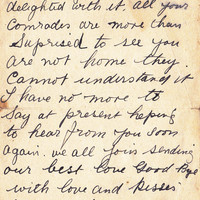 delighted with it. all your
Comrades are more than
Suprised to see you
are not home they
Cannot understand it
I have no more to
Say at present hoping
to hear from you Soon
again. we all join sending
our best love Good Bye
with love and Kisses